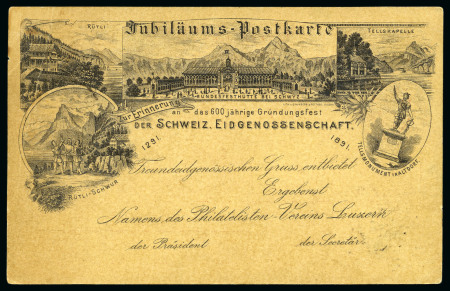 Jubiläums-Postkarte
RÜTLI
TELLSKAPELLE
BUNDESFESTHÜTTE BEI SCHWYZ
Zur Erinnerung
an das 600 jährige Gründungsfest
DER SCHWEIZ. EIDGENOSSENSCHAFT.
1291.
1891.
RÜTLI-SCHWUR
TELLMONUMENT IN ALTDORF
Freundeidgenössischen Gruss entbietet
Ergebenst
Namens des Philatelisten-Vereins Luzern
der Präsident
der Secretär